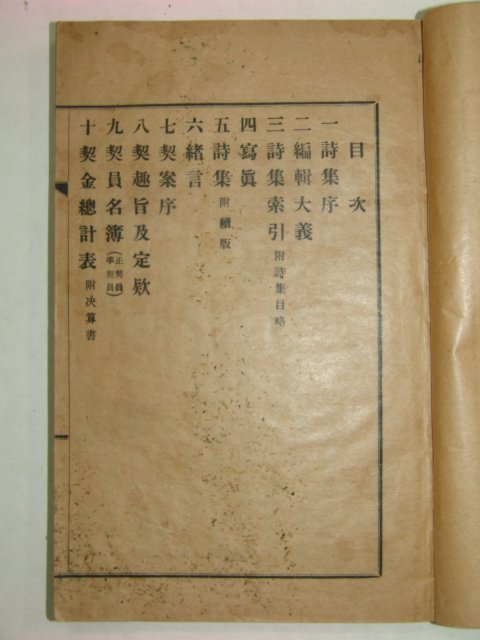 目次
一詩集序
二編輯大義
三詩集索引 附詩集目略
四寫眞
五詩集 附續版
六緖言
七契案序
八契趣旨及定欵
九契員名簿(正契員 準契員)
十契金總計表 附决算書